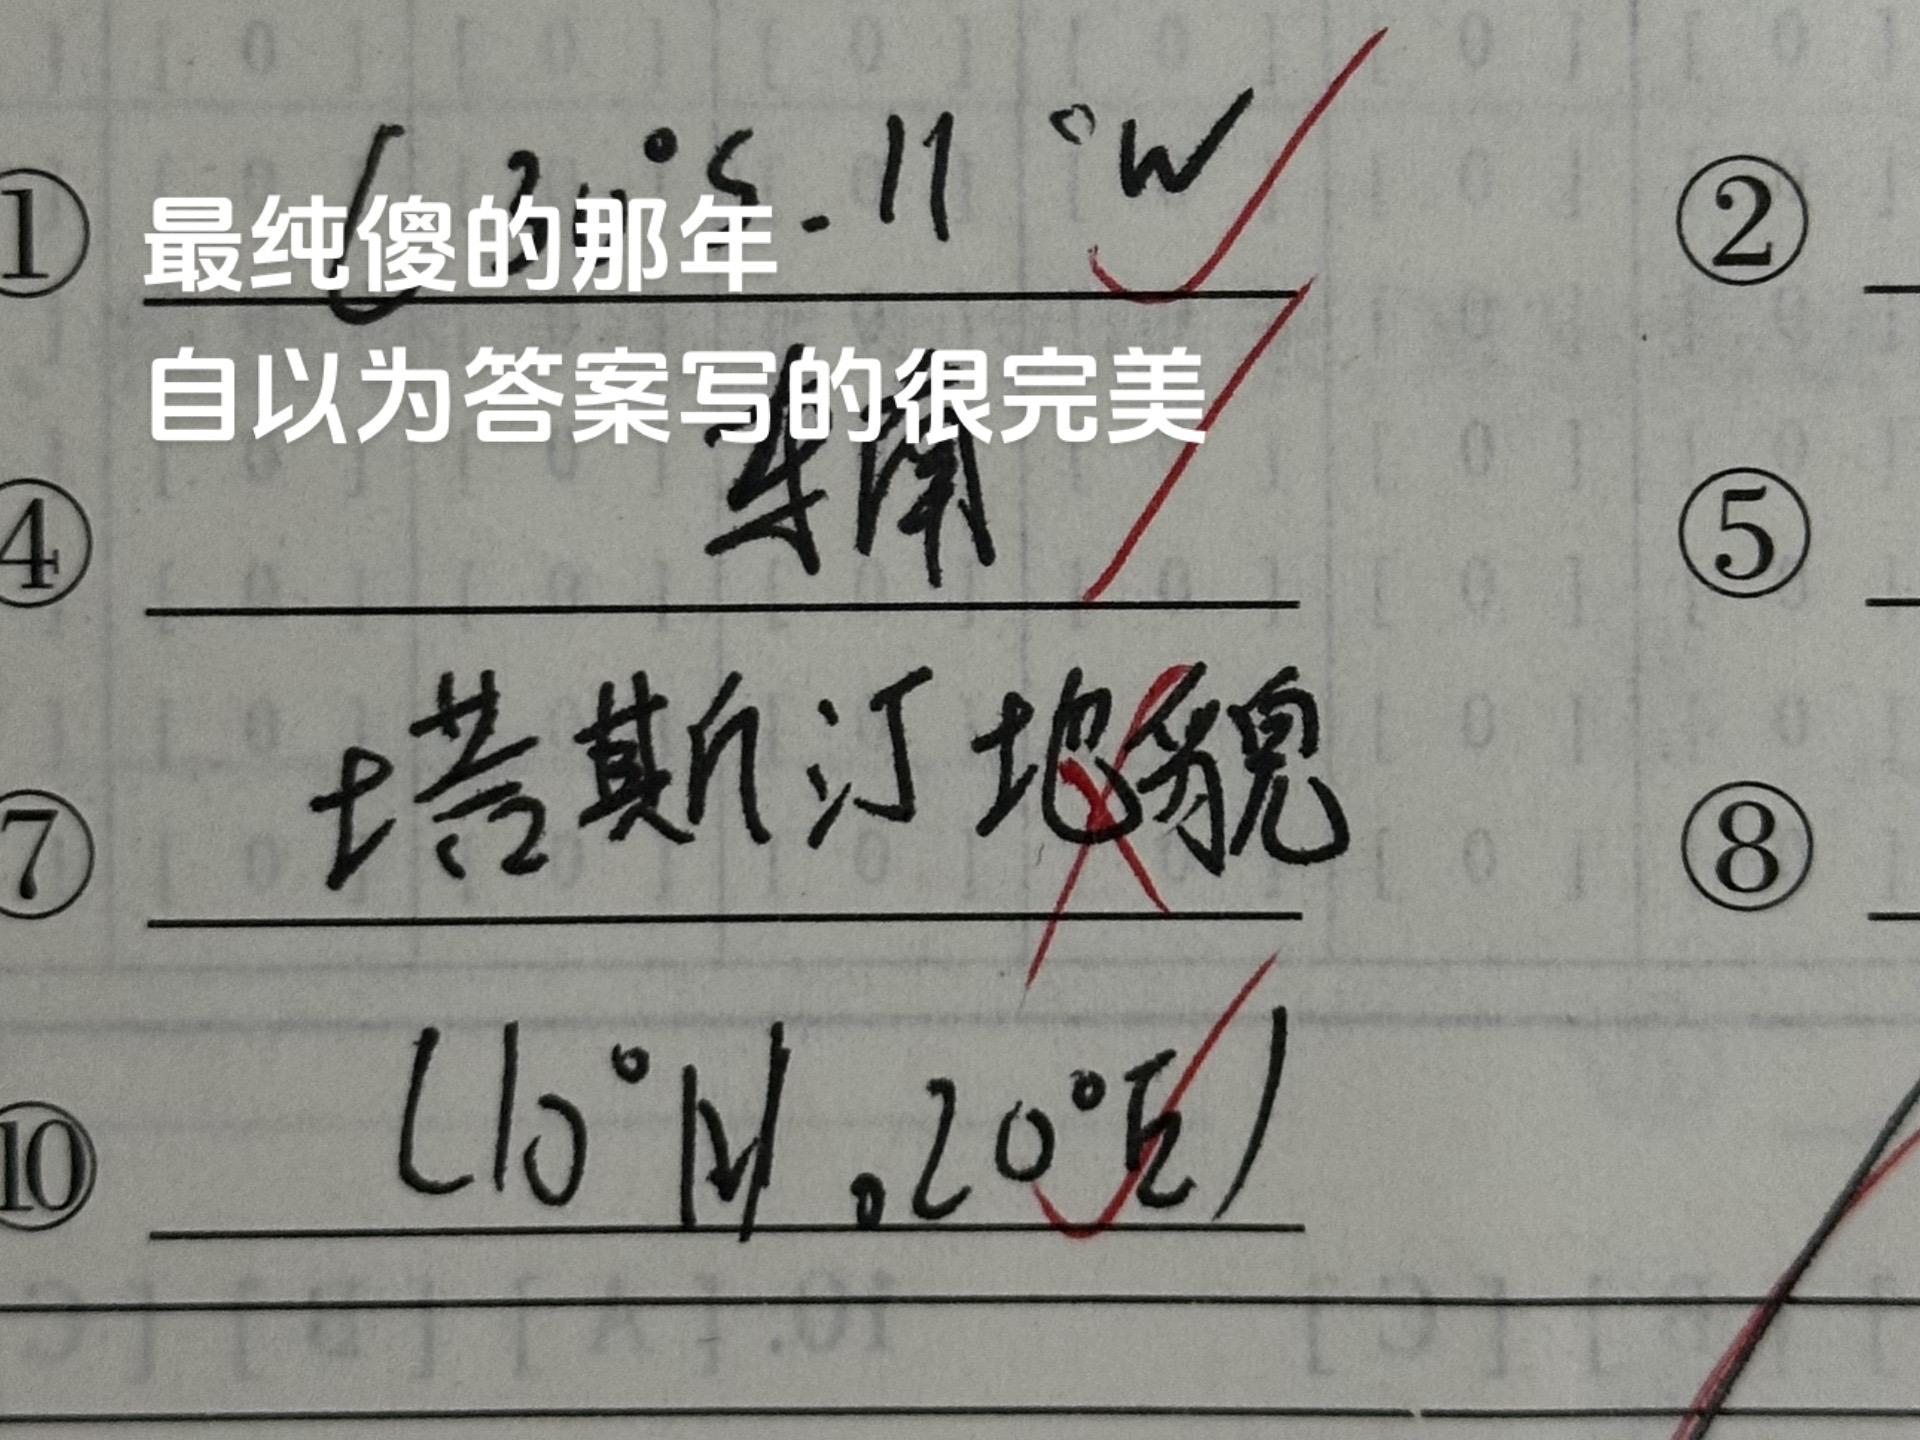 ① (30°S.11°W ②
最纯傻的那年
自以为答案写的很完美
④ 东南 ⑤
⑦ 塔斯汀地貌 ⑧
⑩ (10°N.20°E)
10. [A] [B] [C]